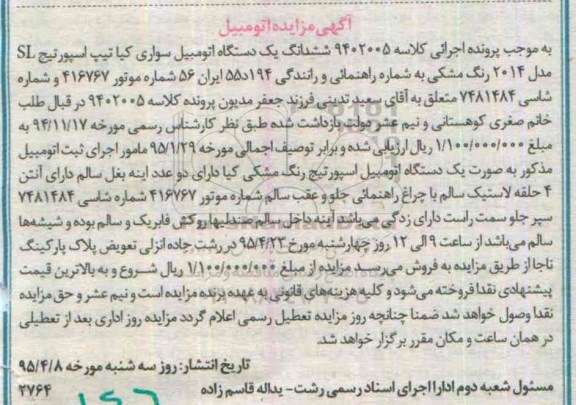 آگهی مزایده اتومبیل
به موجب پرونده اجرائی کلاسه ۹۴۰۲۰۰۵ ششدانگ یک دستگاه اتومبیل سواری کیا تیپ اسپورتیج SL
مدل ۲۰۱۴ رنگ مشکی به شماره راهنمائی و رانندگی ۱۹۴د۵۵ ایران ۵۶ شماره موتور ۴۱۶۷۶۷ و شماره
شاسی ۷۴۸۱۴۸۴ متعلق به آقای سعید تدینی فرزند جعفر مدیون پرونده کلاسه ۹۴۰۲۰۰۵ در قبال طلب
خانم صغری کوهستانی و نیم عشر دولتی بازداشت شده طبق نظر کارشناس رسمی مورخه ۹۴/۱۱/۱۷ به
مبلغ ۱/۱۰۰/۰۰۰/۰۰۰ ریال ارزیابی شده و برابر توصیف اجمالی مورخه ۹۵/۱/۲۹ مامور اجرای ثبت اتومبیل
مذکور به صورت یک دستگاه اتومبیل اسپورتیج رنگ مشکی کیا دارای دو عدد اینه بغل سالم دارای آنتن
۴ حلقه لاستیک سالم با چراغ راهنمائی جلو و عقب سالم شماره موتور ۴۱۶۷۶۷ شماره شاسی ۷۴۸۱۴۸۴
سپر جلو سمت راست دارای زدگی می‌باشد اینه داخل سالم صندلیها روکش فابریک و سالم بوده و شیشه‌ها
سالم می‌باشد از ساعت ۹ الی ۱۲ روز چهارشنبه مورخ ۹۵/۴/۲۳ در رشت جاده انزلی تعویض پلاک پارکینگ
ناجا از طریق مزایده به فروش می‌رسد مزایده از مبلغ ۱/۱۰۰/۰۰۰/۰۰۰ ریال شروع و به بالاترین قیمت
پیشنهادی نقدا فروخته می‌شود و کلیه هزینه‌های قانونی به عهده برنده مزایده است و نیم عشر و حق مزایده
نقدا وصول خواهد شد ضمنا چنانچه روز مزایده تعطیل رسمی اعلام گردد مزایده روز اداری بعد از تعطیلی
در همان ساعت و مکان مقرر برگزار خواهد شد.
تاریخ انتشار: روز سه شنبه مورخه ۹۵/۴/۸
مسئول شعبه دوم ادارا اجرای اسناد رسمی رشت- یداله قاسم زاده ۲۷۶۴